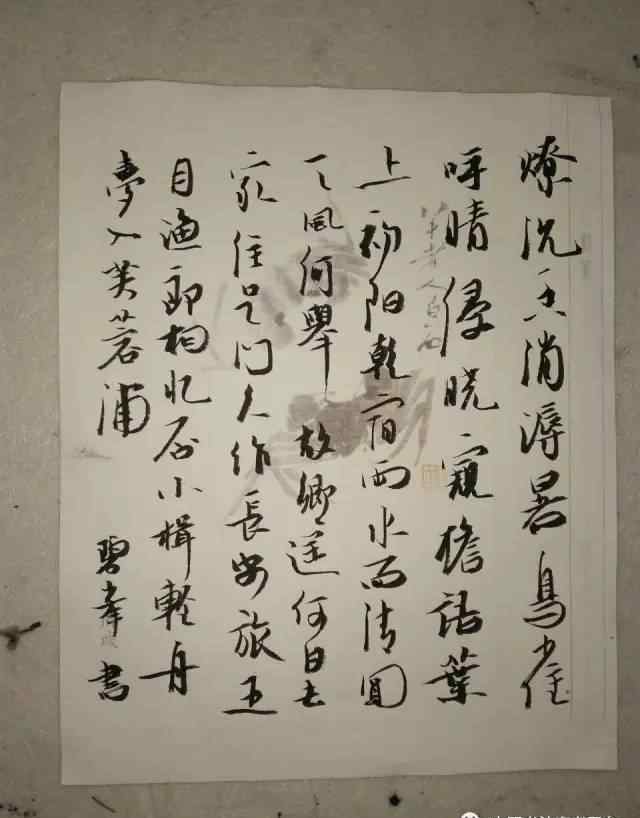 燎沉香消溽暑鳥雀
呼晴侵晓窺檐語葉
上初阳乾宿雨水面清圓
一一風荷舉故鄉遥何日去
家住吴門久作長安旅五
月渔郎相忆否小楫輕舟
夢入芙蓉浦
書